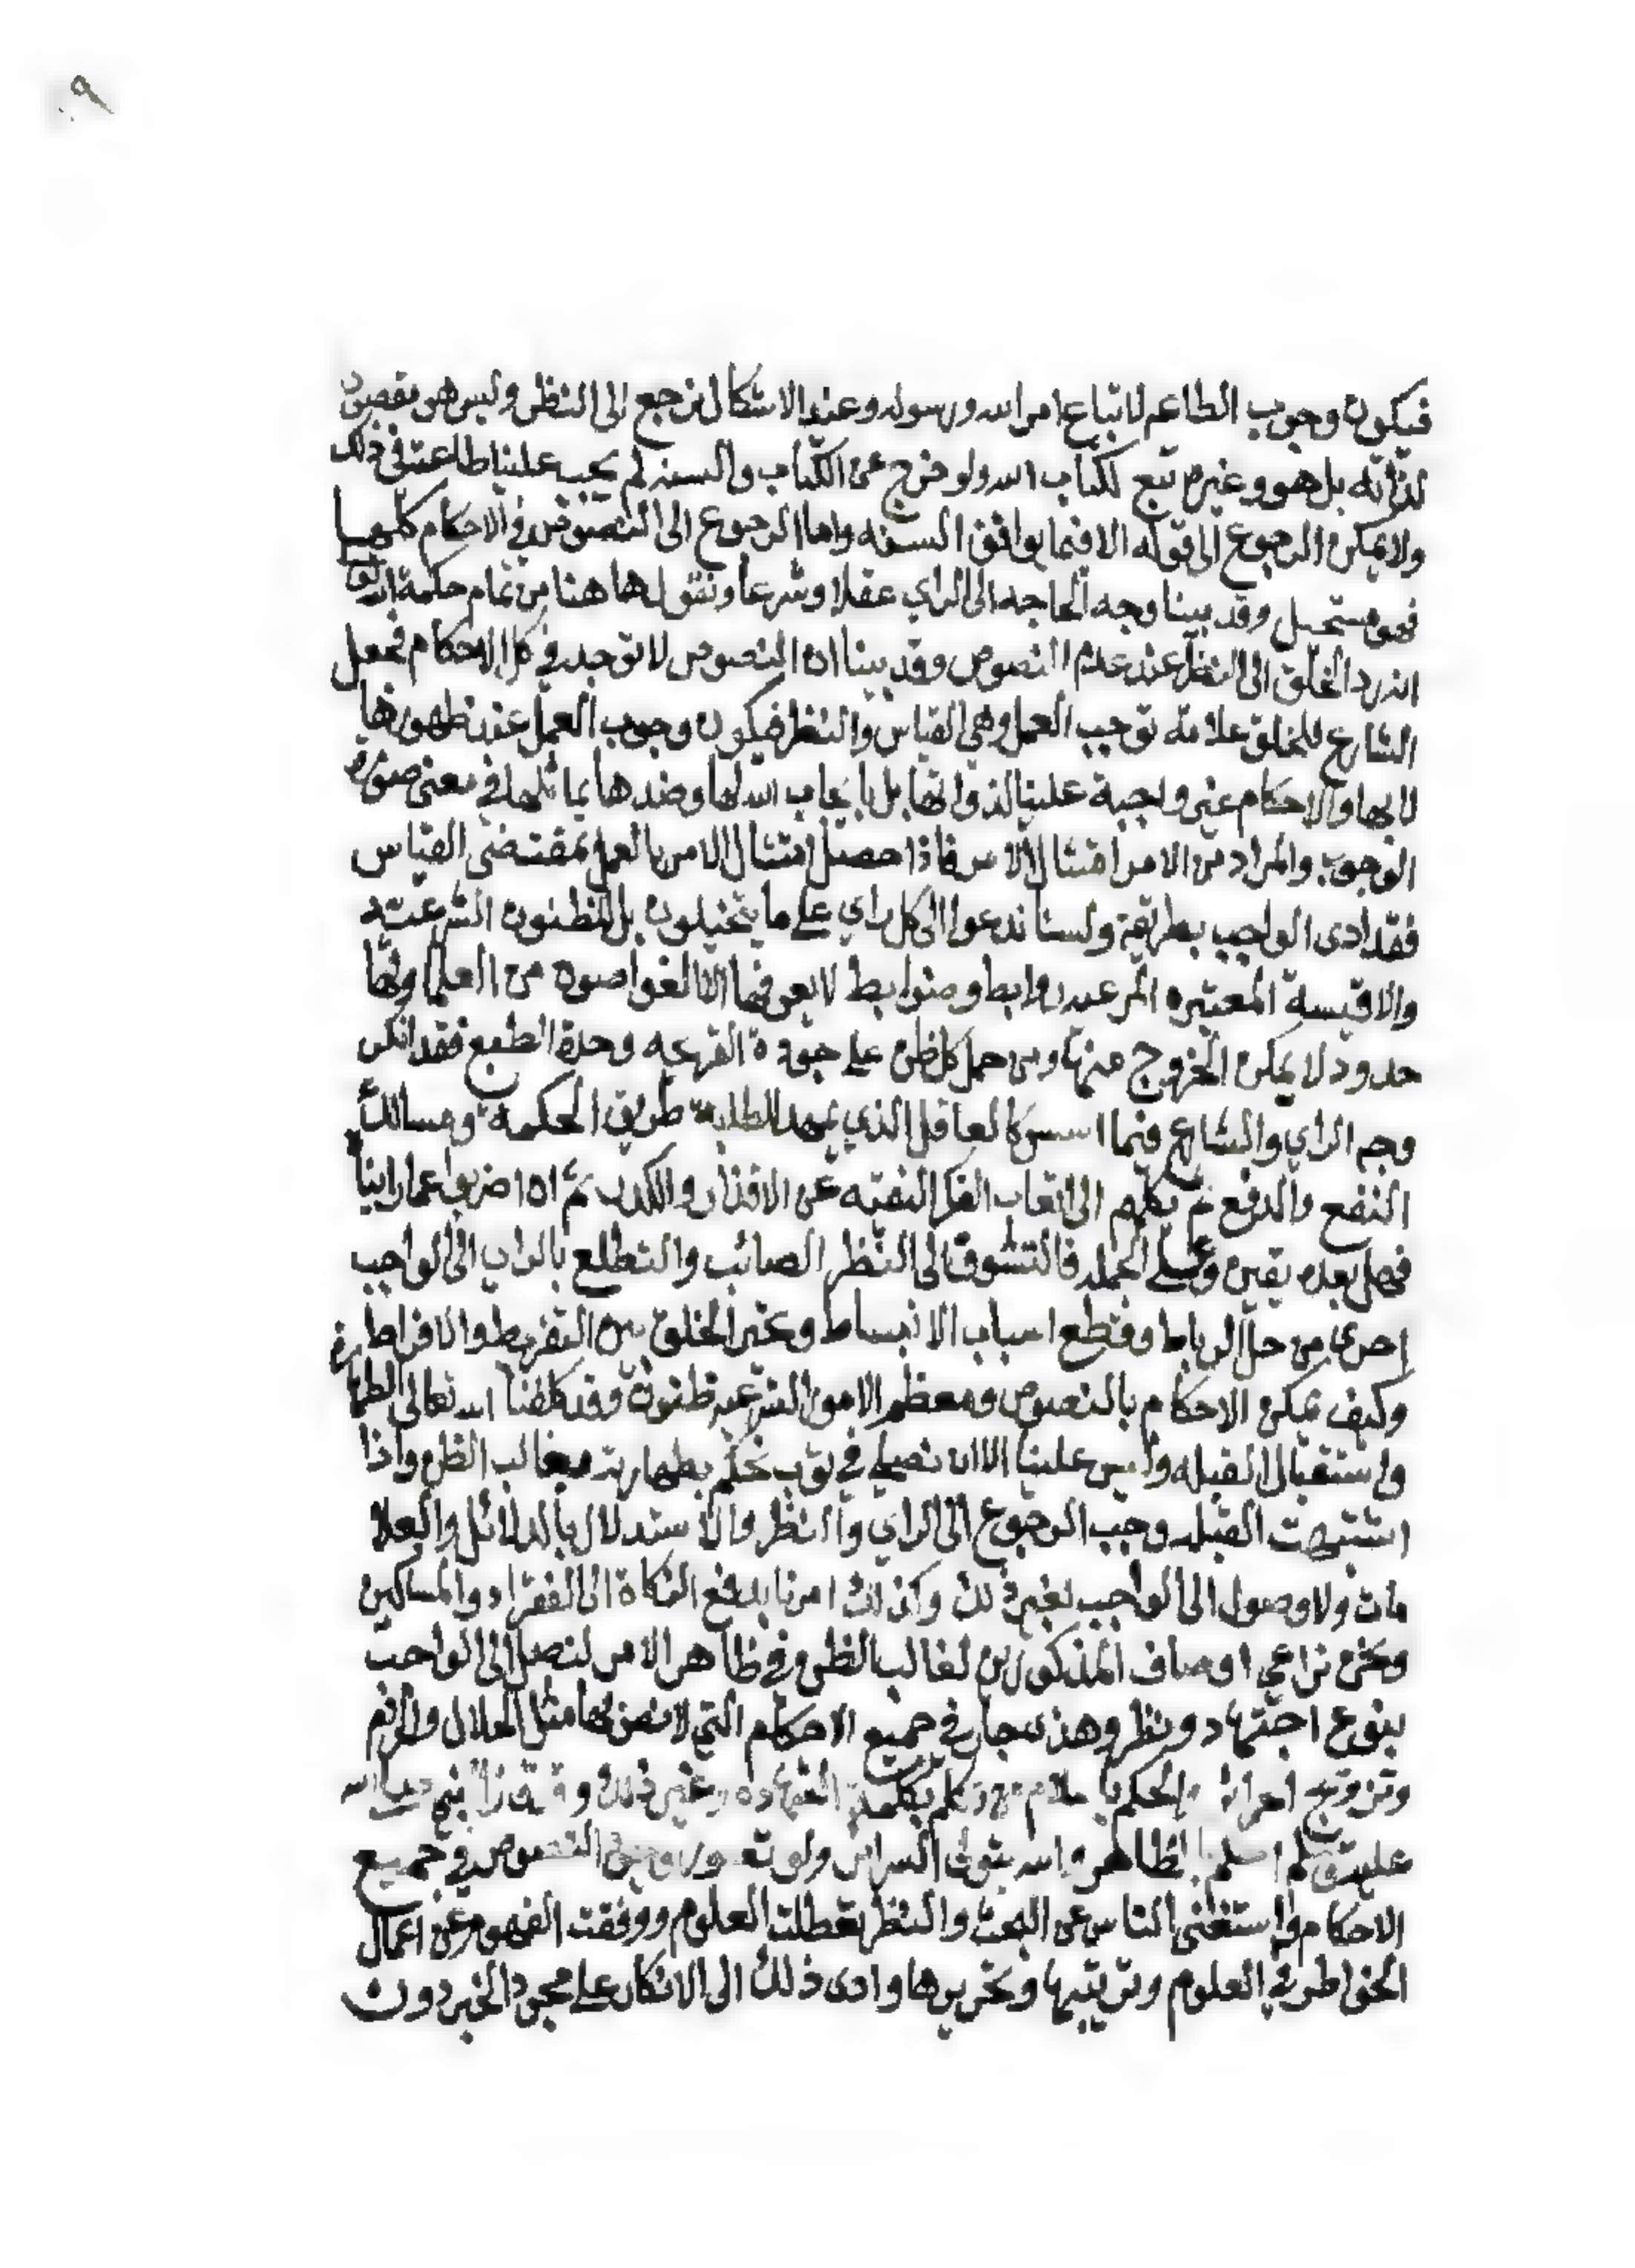 ٩
فيكون وجوب الطاعه لاتباع امر الله ورسوله وعند الاشكال نرجع الى النظر وليس هو مقصود
لذاته بل هو وغيره تبع لكتاب الله ولو خرج عن الكتاب والسنه لم يجب علينا طاعته في ذلك
ولا يمكن الرجوع الى قوله الا فيما يوافق السنه واما الرجوع الى النصوص في الاحكام كلها
فهو مستحيل وقد بينا وجه الحاجه الى الراي عقلا وشرعا ونقول ها هنا من تمام حكمة الله
ان رد الخلق الى النظر عند عدم النصوص وقد بينا ان النصوص لا توجد في كل الاحكام فجعل
الشارع للخلق علامة توجب العمل وهي القياس والنظر فيكون وجوب العمل عند ظهورها
لا بها والاحكام غير واجبة علينا لذواتها بل بايجاب الله لها وضدها يماثلها في معنى صورة
الوجوب والمراد من الامر امتثال الامر فاذا حصل امتثال الامر بالعمل بمقتضى القياس
فقد ادى الواجب بطريقة ولسنا ندعوا الى كل راي على ما يتخيلون بل للظنون الشرعيه
والاقيسة المعتبره المرعيه روابط وضوابط لا يعرفها الا الغواصون من العلما ولها
حدود لا يمكن الخروج منها ومن حمل كل ظن على جودة القريحه وحدة الطبع فقد انكر
وجه الراي والشارع فيما اسس كالعاقل الذي يمهد للطلبة طريق الحكمة ومسالك
النفع والدفع ثم يكلهم الى اتعاب الفكر النقيه عن الاقذار والكدر ثم اذا ضربوا عما راينا
فحصل بعده يقين وعلى الجمله فالتشوق الى النظر الصائب والتطلع بالراي الى الواجب
احرى من حل الرباط وقطع اسباب الانبساط وتحير الخلق بين التفريط والافراط
وكيف يمكن الاحكام بالنصوص ومعظم الامور الشرعيه ظنون وقد كلفنا الله تعالى الطهارة
واستقبال القبله وليس علينا الا ان نصلي في ثوب نحكم بطهارته بغالب الظن واذا
اشتبهت القبله وجب الرجوع الى الراي والنظر والاستدلال بالدلائل والعلا
مات ولا وصول الى الواجب بغير ذلك وكذلك امرنا بدفع الزكاة الى الفقراء والمساكين
ونحن نراعي اوصاف المذكورين لغالب الظن في ظاهر الامر لنصل الى الواجب
بنوع اجتهاد ونظر وهذا جار في جميع الاحكام التي لا نص لها مثل
وتزويج امراة والحكم باسلام من تكلم بكلمة الشهاده وغير ذلك وقد قال النبي صلى الله
عليه وسلم احكم بالظاهر والله يتولى السرائر ولو تصور وجود النصوص في جميع
الاحكام واستغنى الناس عن البحث والنظر تعطلت العلوم ووقفت الفهوم عن اعمال
الخواطر في العلوم وترتيبها وتحريرها وادى ذلك الى الانكار على مجرد الخبر دون